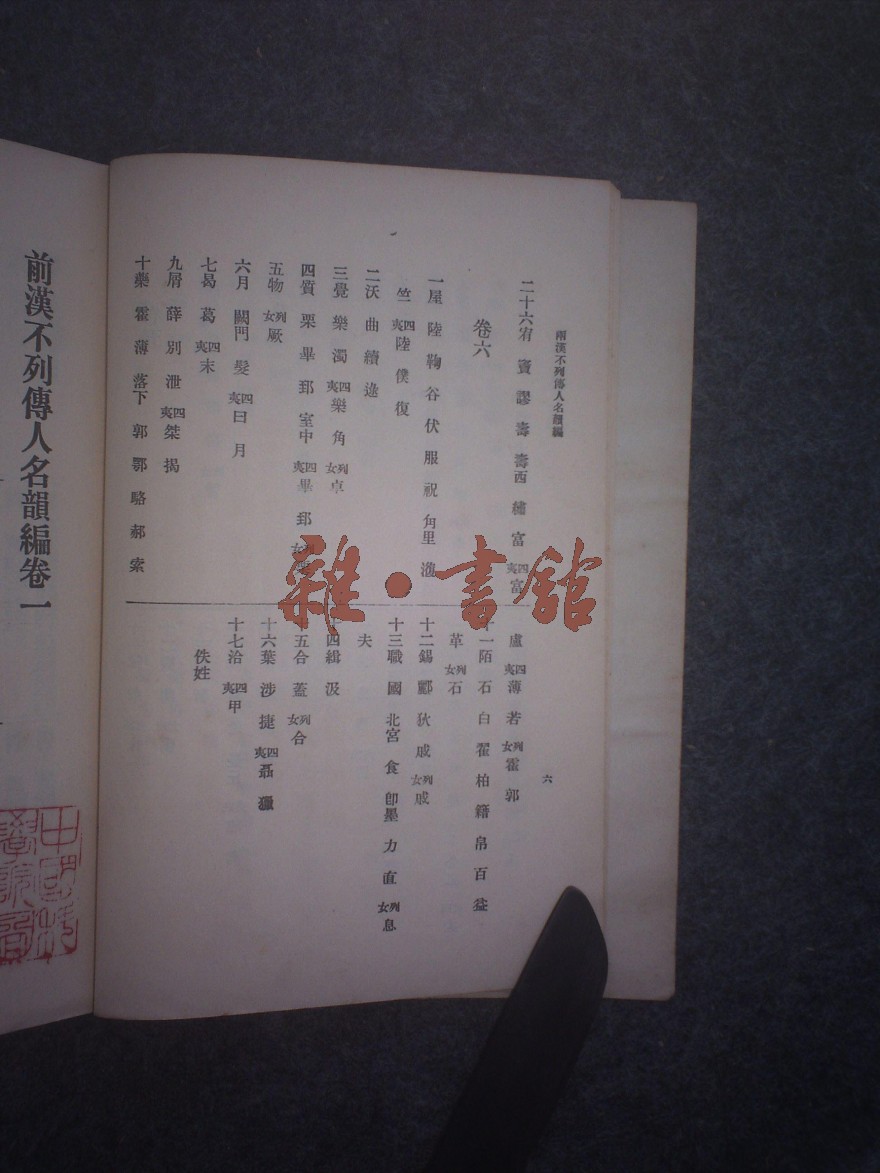 兩漢不列傳人名韻編
二十六宥 竇 謬 壽 壽西 繡 富 四夷富
卷六
一屋 陸 鞠 谷 伏 服 祝 角里
竺 四夷陸 僕 復
二沃 曲 續 逯
三覺 樂 濁 四夷樂 角 列女卓
四質 栗 畢 郅 室中 四夷畢 郅
五物 列女厥
六月 闕門 髮 四夷日 月
七曷 葛 四夷末
九屑 薛 別 泄 四夷桀 揭
十藥 霍 薄 落下 郭 鄂 駱 郝 索
六
盧 四夷薄 若 列女霍 郭
十一陌 石 白 翟 柏 籍 帛 百 益
革 列女石
十二錫 酈 狄 戚 列女戚
十三職 國 北宮 食 卽墨 力 直 列女息
夫
十四緝 汲
十五合 蓋 列女合
十六葉 涉 捷 四夷聶 獵
十七洽 四夷甲
佚姓
前漢不列傳人名韻編卷一
雜·書館